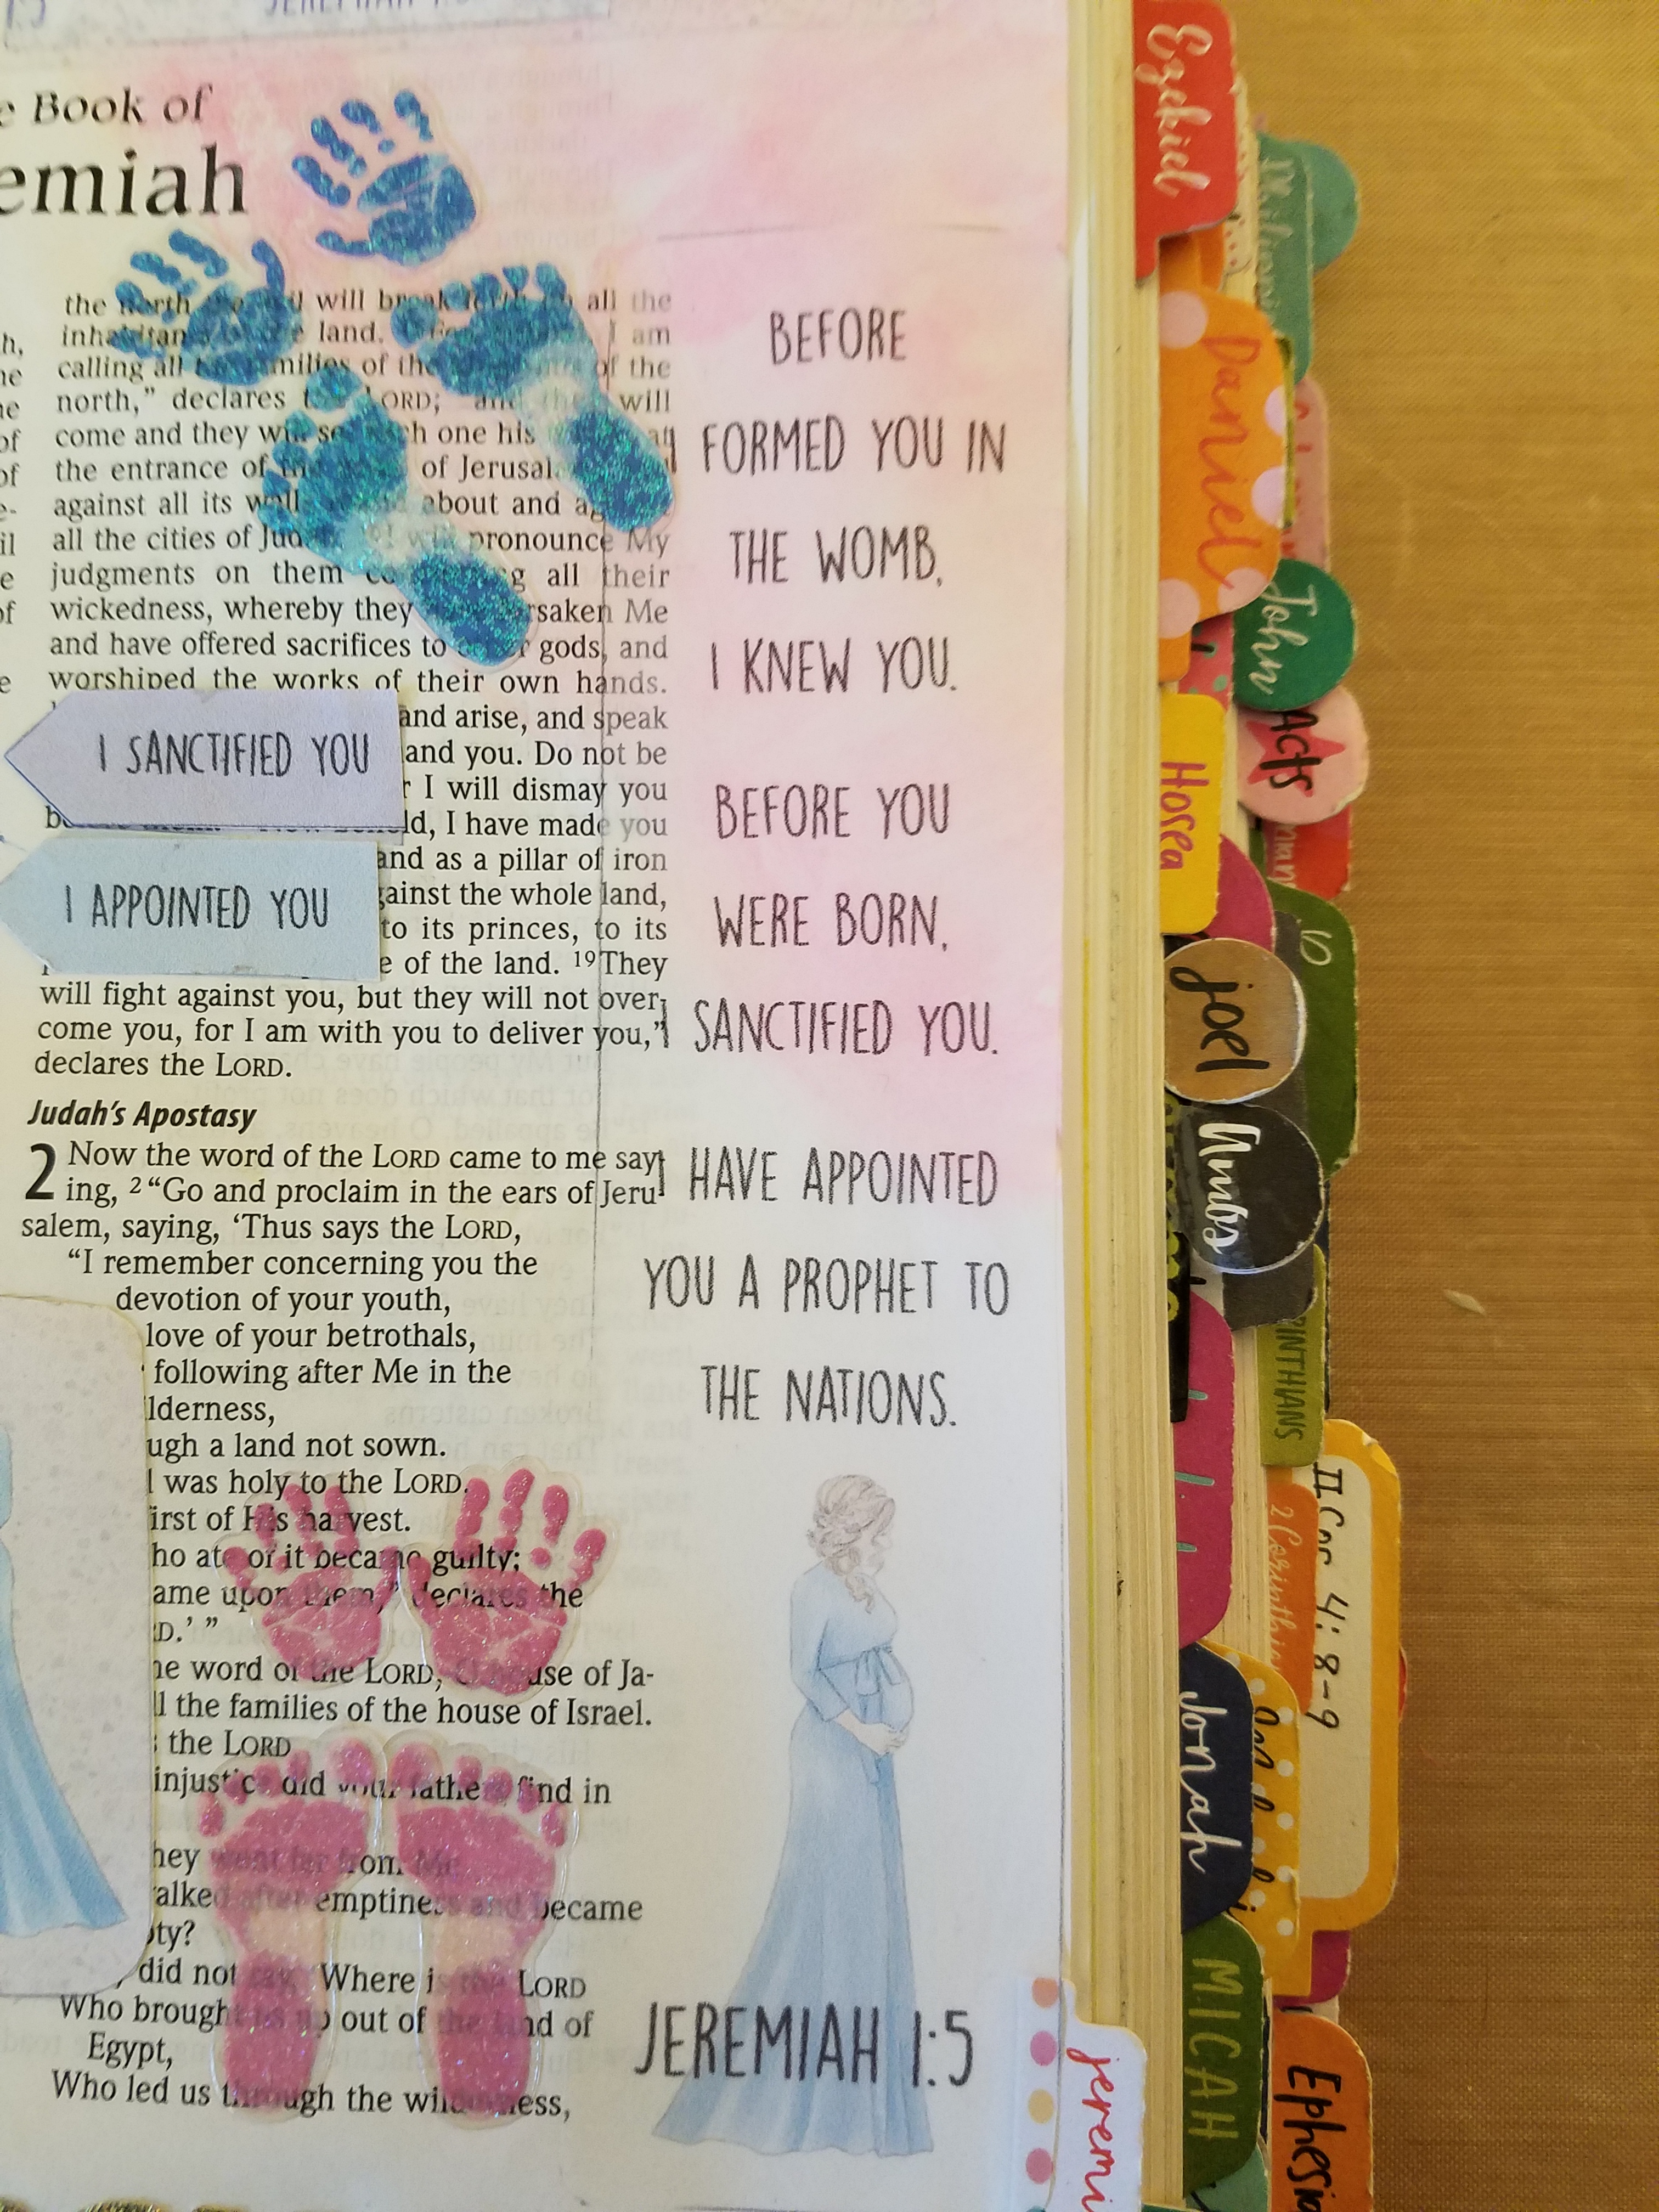 Book of
emiah
the north will break all the
land. I am
calling all families of the of the
north,” declares LORD; and will
come and they one his
the entrance of of Jerusal
against all its about and
all the cities of pronounce My
judgments on them all their
wickedness, whereby they Me
and have offered sacrifices to gods, and
worshiped the works of their own hands.
and arise, and speak
and you. Do not be
I will dismay you
I have made you
and as a pillar of iron
the whole land,
to its princes, to its
of the land. 19 They
will fight against you, but they will not over-
come you, for I am with you to deliver you,”
declares the LORD.
I SANCTIFIED YOU
I APPOINTED YOU
Judah’s Apostasy
2 Now the word of the LORD came to me say-
ing, 2 “Go and proclaim in the ears of Jeru-
salem, saying, ‘Thus says the LORD,
“I remember concerning you the
devotion of your youth,
love of your betrothals,
following after Me in the
lderness,
ugh a land not sown.
was holy to the LORD,
irst of His harvest.
ho ate of it became guilty;
ame upon them,” declares the
D.’ ”
he word of the LORD, use of Ja-
l the families of the house of Israel.
the LORD
injustice did your fathers find in
hey went far from Me
alked after emptiness and became
pty?
did not say, ‘Where is the LORD
Who brought us up out of the land of
Egypt,
Who led us through the wilderness,
BEFORE
I FORMED YOU IN
THE WOMB,
I KNEW YOU.
BEFORE YOU
WERE BORN,
I SANCTIFIED YOU.
I HAVE APPOINTED
YOU A PROPHET TO
THE NATIONS.
JEREMIAH 1:5
Ezekiel
Daniel
John
Acts
Hosea
joel
Amos
RINTHIANS
II Cor 4:8-9
2 Corinthia
Jonah
MICAH
Ephesia
jeremi